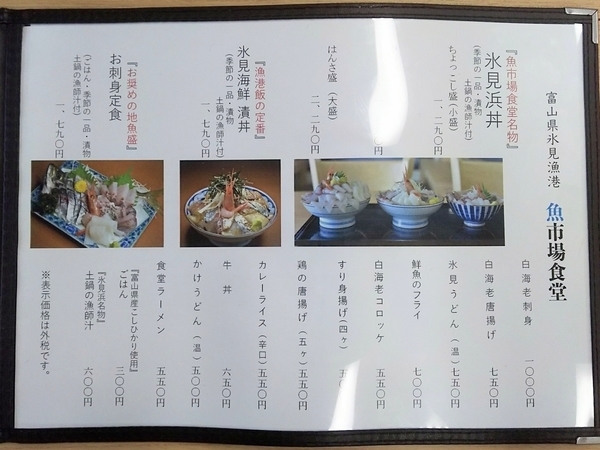 富山県氷見漁港 魚市場食堂
『魚市場食堂名物』
氷見浜丼
(季節の一品・漬物
土鍋の漁師汁付)
ちょっこし盛(小盛)
一、二九〇円
円
はんさ盛(大盛)
二、二九〇円
『漁港飯の定番』
氷見海鮮漬丼
(季節の一品・漬物
土鍋の漁師汁付)
一、七九〇円
『お奨めの地魚盛』
お刺身定食
(ごはん・季節の一品・漬物
土鍋の漁師汁付)
一、七九〇円
白海老刺身 一〇〇〇円
白海老唐揚げ 七五〇円
氷見うどん(温)七五〇円
鮮魚のフライ 七〇〇円
白海老コロッケ 五五〇円
すり身揚げ(四ヶ)
鶏の唐揚げ(五ヶ)五五〇円
カレーライス(辛口)五五〇円
牛丼 六五〇円
かけうどん(温)五〇〇円
食堂ラーメン 五五〇円
『富山県産こしひかり使用』
ごはん 三〇〇円
『氷見浜名物』
土鍋の漁師汁 六〇〇円
※表示価格は外税です。